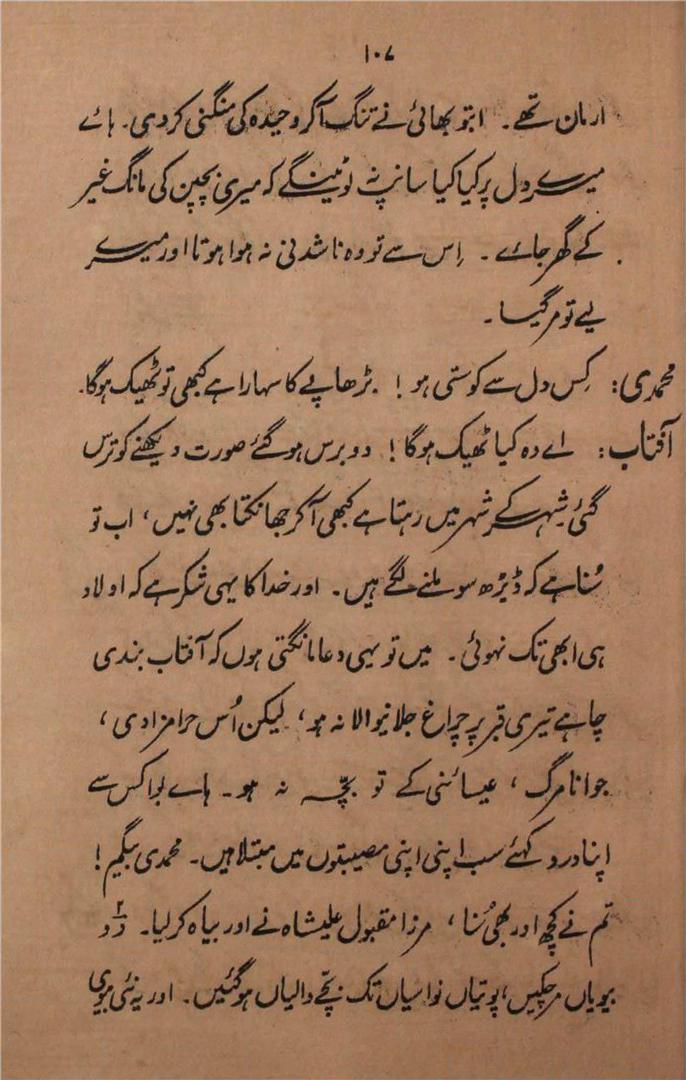 ۱۰۷
ارمان تھے۔ ابتو بھائی نے تنگ آکر وحیدہ کی منگنی کر دی۔ ہائے
میرے دل پر کیا کیا سانپ نہ لوٹینگے کہ میری بچپن کی مانگ غیر
کے گھر جائے۔ اِس سے تو وہ ناشدنی نہ ہوا ہوتا اور میرے
لیے تو مر گیا۔
محمدی: کِس دل سے کوستی ہو! بڑھاپے کا سہارا ہے کبھی تو ٹھیک ہوگا۔
آفتاب: اے وہ کیا ٹھیک ہوگا! دو برس ہو گئے صورت دیکھنے کو ترس
گئی شہر کے شہر میں رہتا ہے کبھی آ کر جھانکتا بھی نہیں، اب تو
سُنا ہے کہ ڈیڑھ سو ملنے لگے ہیں۔ اور خدا کا یہی شکر ہے کہ اولاد
ہی ابھی تک نہوئی۔ میں تو یہی دعا مانگتی ہوں کہ آفتاب بندی
چاہے تیری قبر پر چراغ جلانیوالا نہ ہو، لیکن اُس حرامزادی،
جوانا مرگ، عیسائنی کے تو بچّہ نہ ہو۔ ہاے بوا کس سے
اپنا درد کہئے سب اپنی اپنی مصیبتوں میں مبتلا ہیں۔ محمدی بیگم!
تم نے کچھ اور بھی سُنا، مرزا مقبول علیشاہ نے اور بیاہ کر لیا۔ دو
بیویاں مر چکیں، پوتیاں نواسیاں تک بچّے والیاں ہو گئیں۔ اور یہ نئی بیوی